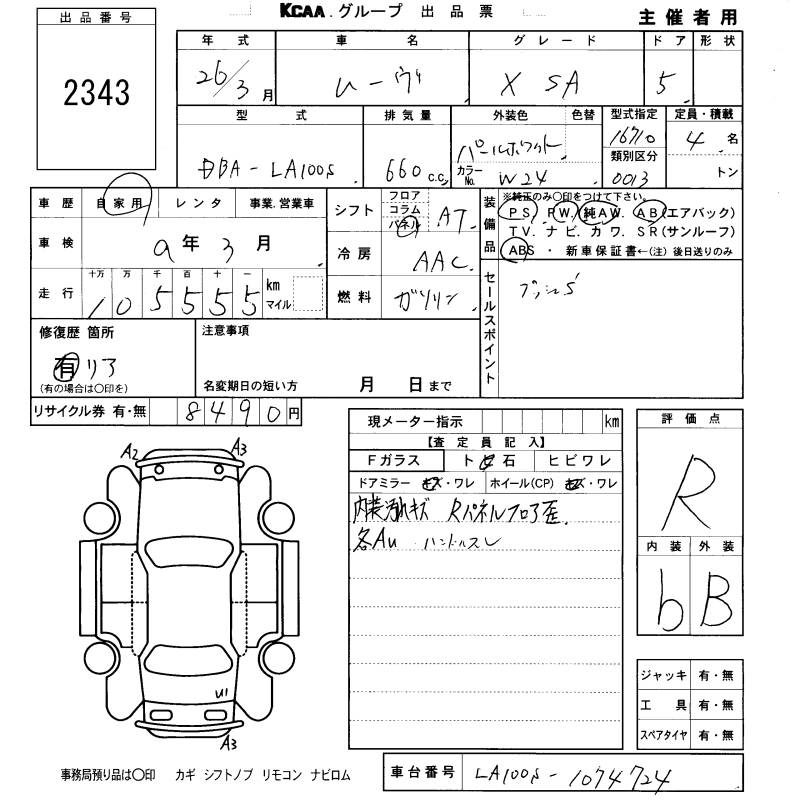 KCAA.グループ 出品票
主催者用
出品番号
2343
年式 車名 グレード ドア 形状
26/3月 ムーヴ X SA 5
型式 排気量 外装色 色替 型式指定 定員・積載
DBA-LA100S 660c.c. パールホワイト 16710 4名
カラーNo. W24 類別区分 0013 トン
車歴 自家用 レンタ 事業.営業車
車検 9年3月
走行 十万 万 千 百 十 一 km マイル
105555
シフト フロア コラム パネル AT
冷房 AAC
燃料 ガソリン
装備品 ※純正のみ○印をつけて下さい。
PS. PW. 純AW. AB(エアバック)
TV. ナビ. カワ. SR(サンルーフ)
ABS・新車保証書←(注)後日送りのみ
セールスポイント
修復歴 箇所
有 リア
(有の場合は○印を)
注意事項
名変期日の短い方 月 日まで
リサイクル券 有・無 8490円
現メーター指示 km
【査定員記入】
Fガラス ト 石 ヒビワレ
ドアミラー キズ・ワレ ホイール(CP) キズ・ワレ
内装汚れキズ Rパネルフロア歪.
各AU ハンドルスレ
評価点
R
内装 外装
b B
A2 A3
U1
A3
ジャッキ 有・無
工具 有・無
スペアタイヤ 有・無
事務局預り品は○印 カギ シフトノブ リモコン ナビロム
車台番号 LA100S-1074724